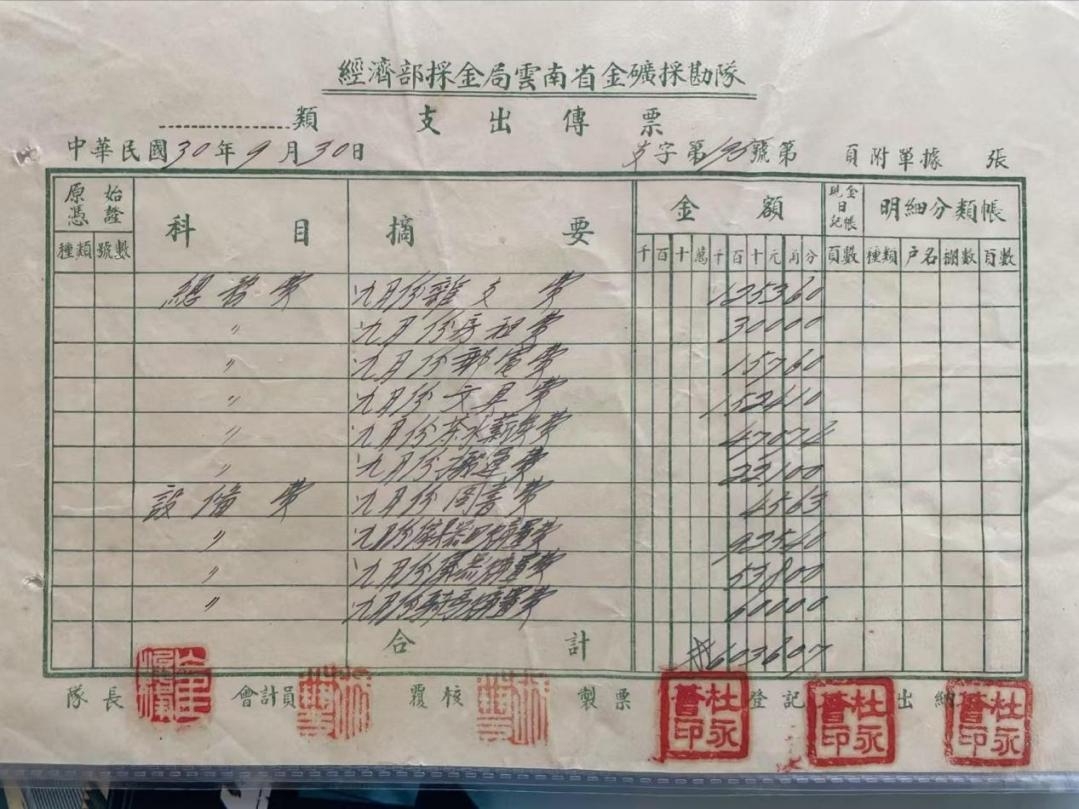 經濟部採金局雲南省金礦採勘隊
類 支出傳票
中華民國30年9月30日 支字第 號第 頁附單據 張
原始憑證 科目 摘要 金額 現金日記帳 明細分類帳
種類 號數 千百十萬千百十元角分 頁數 種類 户名 號數 頁數
總務費 九月份雜支費 125360
〃 九月份房租費 30000
〃 九月份郵電費 15760
〃 九月份文具費 152410
〃 九月份茶水薪炭費 47074
〃 九月份搬運費 22100
設備費 九月份圖書費 4563
〃 九月份儀器購置費 92540
〃 九月份 購置費 53800
〃 九月份 購置費 60000
合計 603607
隊長 會計員 覆核 製票 登記 出納
杜永晉印 杜永晉印 杜永晉印